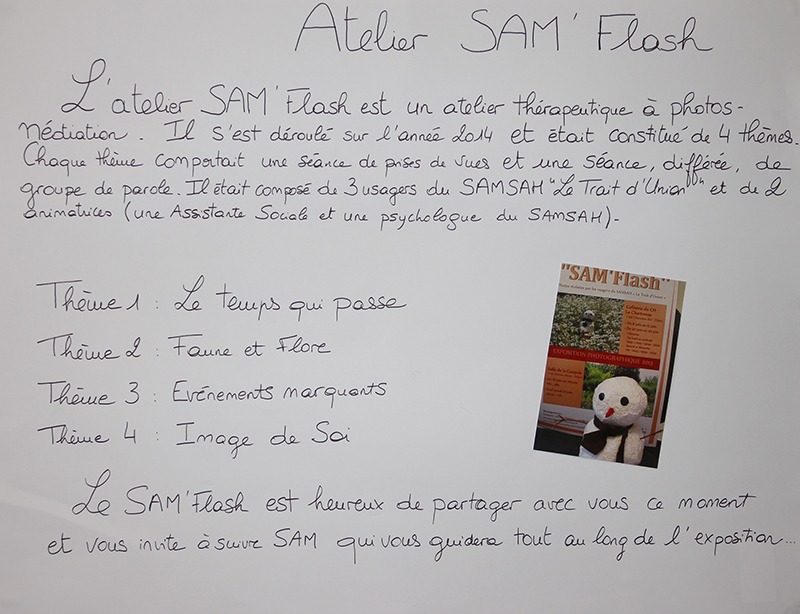 Atelier SAM' Flash
L'atelier SAM'Flash est un atelier thérapeutique à photos-
médiation. Il s'est déroulé sur l'année 2014 et était constitué de 4 thèmes.
Chaque thème comportait une séance de prises de vues et une séance, différée, de
groupe de parole. Il était composé de 3 usagers du SAMSAH "Le Trait d'Union" et de 2
animatrices (une Assistante Sociale et une psychologue du SAMSAH).
Thème 1 : Le temps qui passe
Thème 2 : Faune et Flore
Thème 3 : Evénements marquants
Thème 4 : Image de Soi
"SAM'Flash"
EXPOSITION PHOTOGRAPHIQUE
Le SAM'Flash est heureux de partager avec vous ce moment
et vous invite à suivre SAM qui vous guidera tout au long de l'exposition...